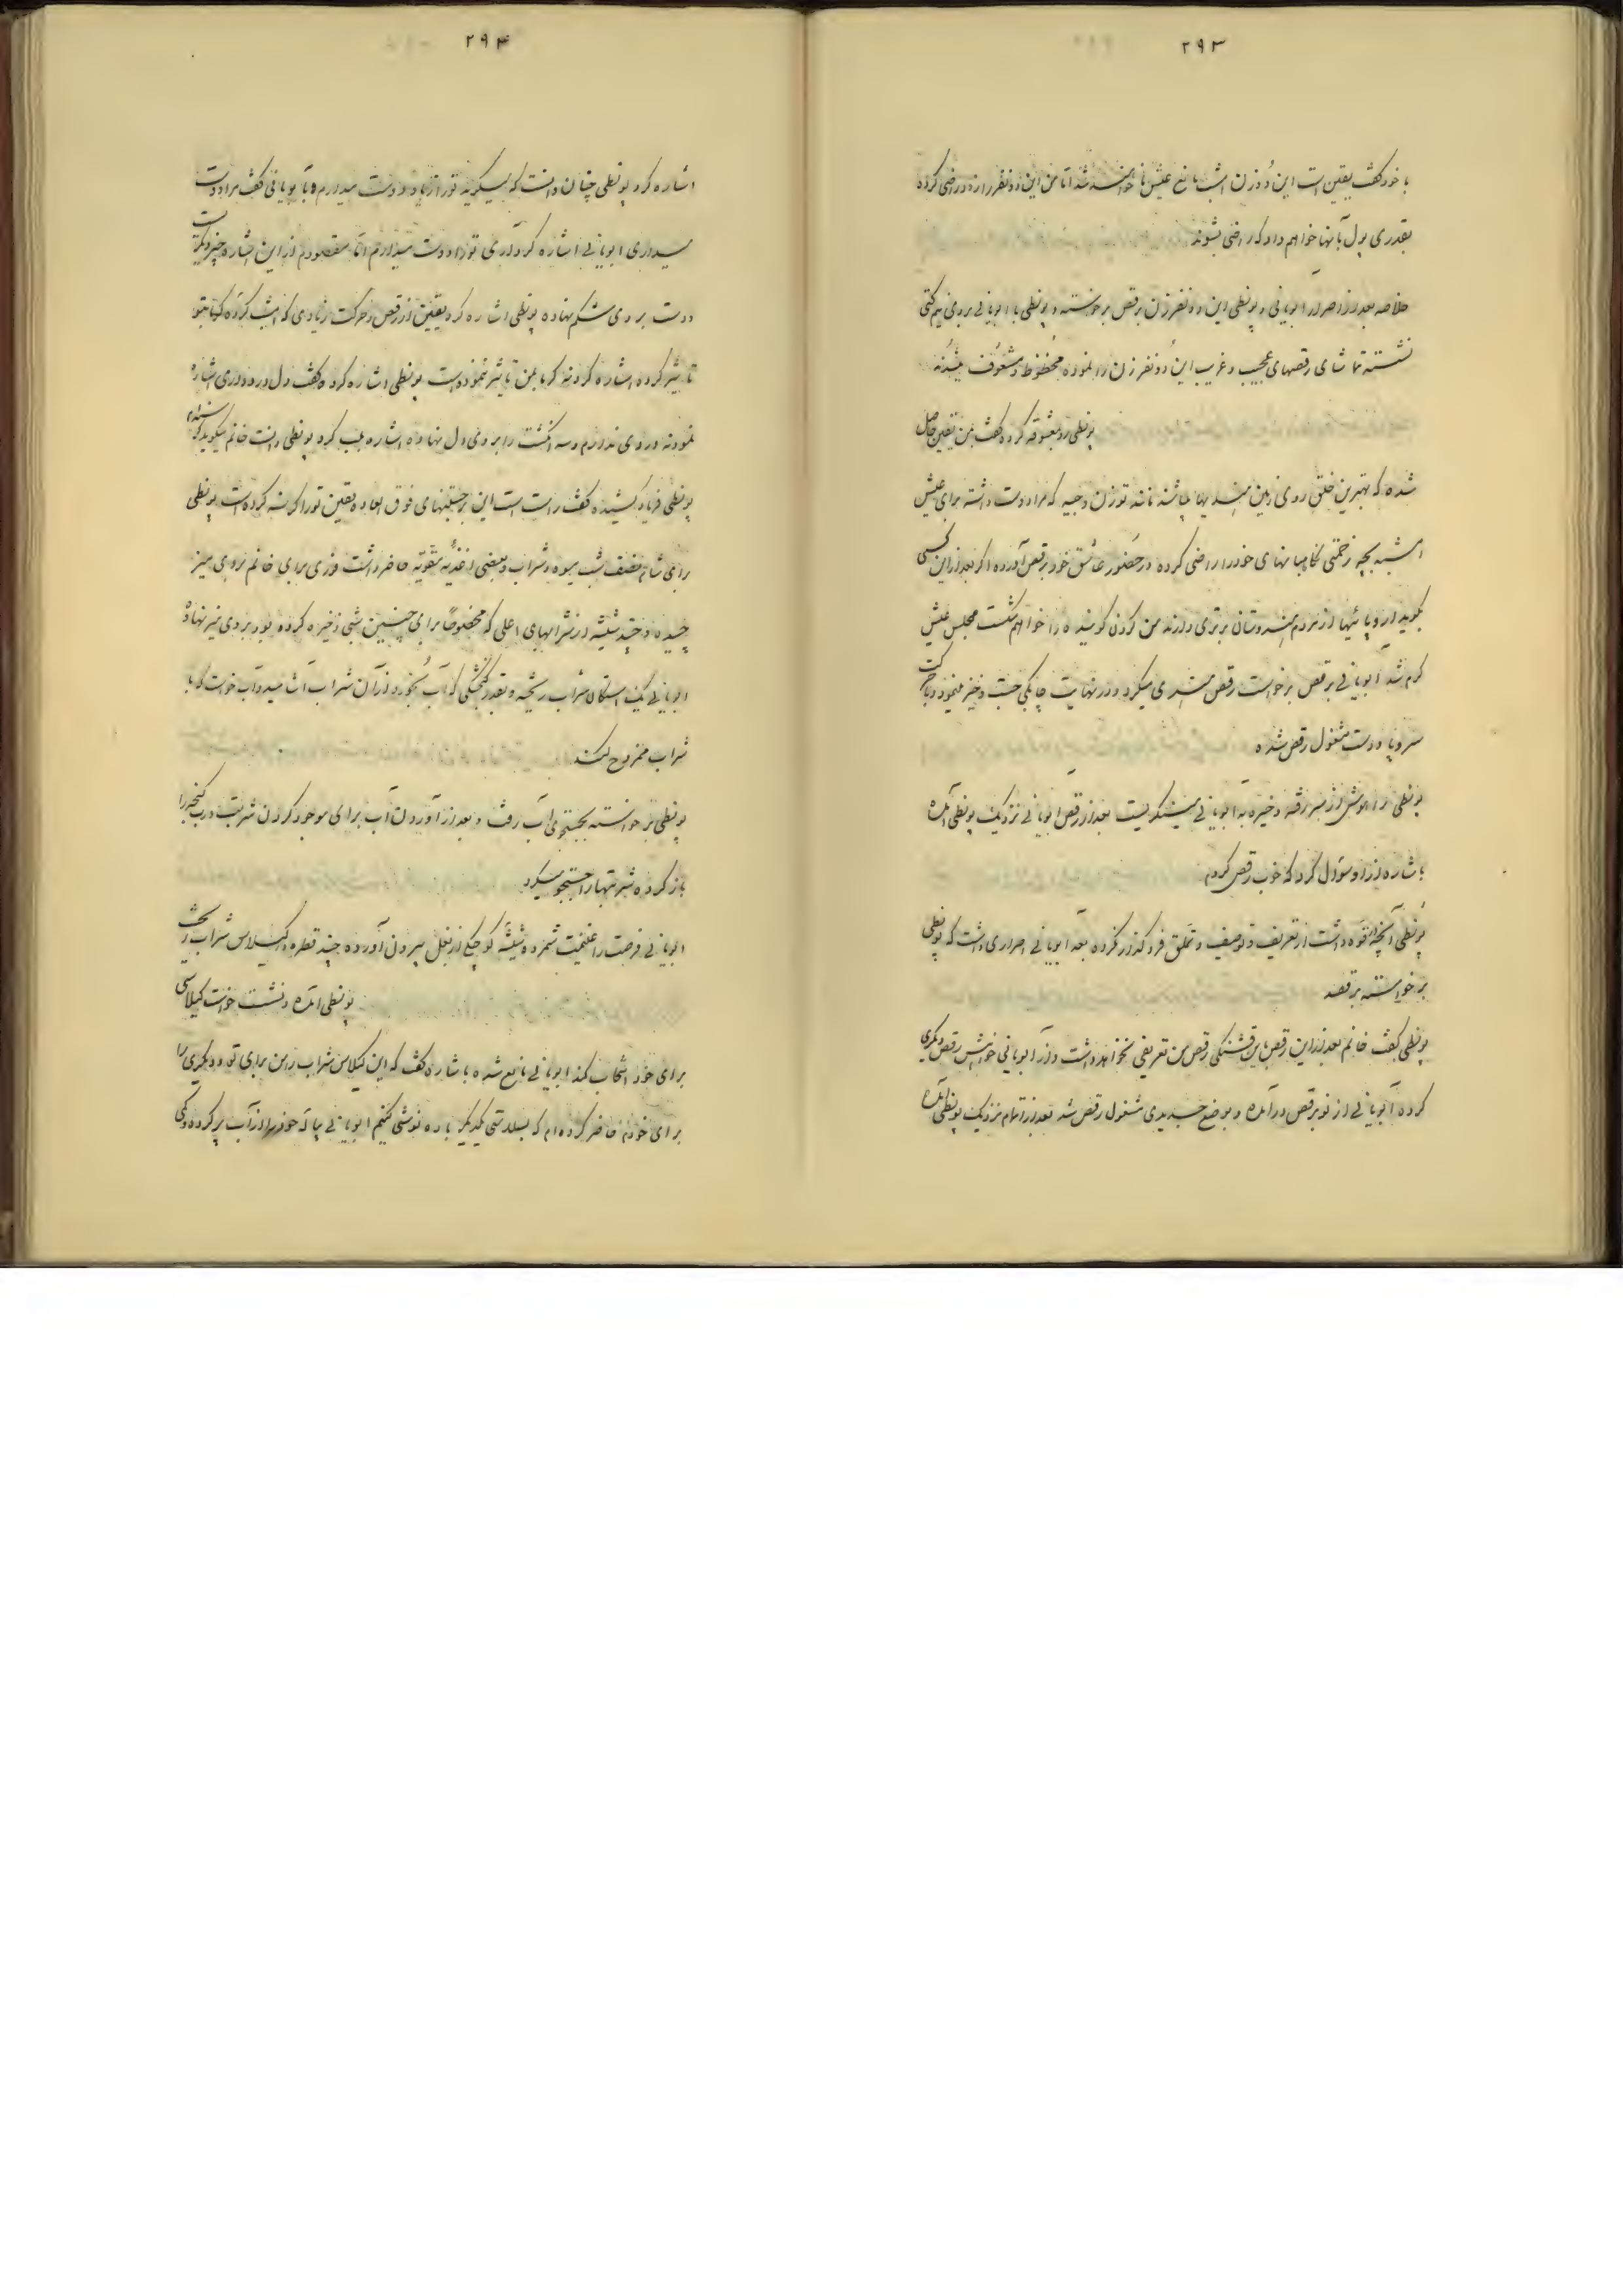 ۲۹۳
با خود گفت یقین است این دو زن امشب مانع عیش ما خواهند شد اما من این دو نفر را از خود راضی کرده
بقدری پول بآنها خواهم داد که راضی بشوند
خلاصه بعد از اصرار ابویانی و پونطی این دو نفر زن برقص برخواسته و پونطی با ابویانی بروی نیم کتی
نشسته تماشای رقصهای عجیب و غریب این دو نفر زن را نموده محظوظ و مشعوف میشدند
پونطی رو بمعشوقه کرد و گفت بمن یقین حاصل
شده که بهترین خلق روی زمین هندیها میباشند مانند تو زن وجیه که مرا دوست داشته برای عیش
امشب بچه زحمتی نگاهبانهای خود را راضی کرده در حضور عاشق خود برقص آورده اگر بعد از این کسی
بگوید اروپائیها از مردم هندوستان برتری دارند من گردن گوینده را خواهم شکست مجلس عیش
گرم شد ابویانی برقص برخواست رقص هندی میکرد و در نهایت چابکی جست و خیز مینمود و با حرکت
سر و پا و دست مشغول رقص شده
پونطی را هوش از سر رفته و خیره به ابویانی مینگریست بعد از رقص ابویانی نزدیک پونطی آمده
باشاره از او سؤال کرد که خوب رقص کردم
پونطی آنچه قوه داشت از تعریف و توصیف و تملق فروگذار نکرده بعد ابویانی اصراری داشت که پونطی
برخواسته برقصد
پونطی گفت خانم بعد از این رقص باین قشنگی رقص من تعریفی نخواهد داشت و از ابویانی خواهش رقص دیگری
کرده ابویانی از نو برقص درآمده و بوضع جدیدی مشغول رقص شد بعد از اتمام نزدیک پونطی آمده
۲۹۴
اشاره کرد پونطی چنان دانست که میگوید تو را زیاد دوست میدارم به ابویانی گفت مرا دوست
میداری ابویانی اشاره کرد آری تو را دوست میدارم اما مقصودم از این اشاره چیز دیگر است
دست بروی شکم نهاده پونطی اشاره کرد یقین از رقص و حرکت زیادی که امشب کرده گویا بتو
تأثیر کرده اشاره کرد نه گرما بمن تأثیر ننموده است پونطی اشاره کرد و گفت دل درد داری اشاره
نمود نه دردی ندارم و سه انگشت را بروی دل نهاده اشاره بلب کرد پونطی دانست خانم میگوید گرسنه‌ام
پونطی فریاد کشیده گفت راست است این جستنهای فوق العاده یقین تو را گرسنه کرده است پونطی
برای شام نصف شب میوه و شراب و بعضی اغذیه مقویه حاضر داشت فوری برای خانم بروی میز
چیده و چند شیشه از شرابهای اعلی که مخصوصاً برای چنین شبی ذخیره کرده بود بروی میز نهاده
ابویانی یک استکان شراب ریخته و بقدر گنجشکی که آب بخورد از آن شراب آشامید و آب خواست که با
شراب ممزوج کند
پونطی برخواسته بجستجوی آب رفت و بعد از آوردن آب برای موجود کردن شربت درب گنجه را
باز کرده شربتها را جستجو میکرد
ابویانی فرصت را غنیمت شمرده شیشه کوچکی از بغل بیرون آورده چند قطره در گیلاس شراب ریخت
پونطی آمده و نشست خواست گیلاسی
برای خود انتخاب کند ابویانی مانع شده باشاره گفت که این گیلاس شراب را من برای تو و دیگری را
برای خودم حاضر کرده‌ام که بسلامتی یکدیگر باده نوشی کنیم ابویانی پیاله خود را از آب پر کرده و کمی